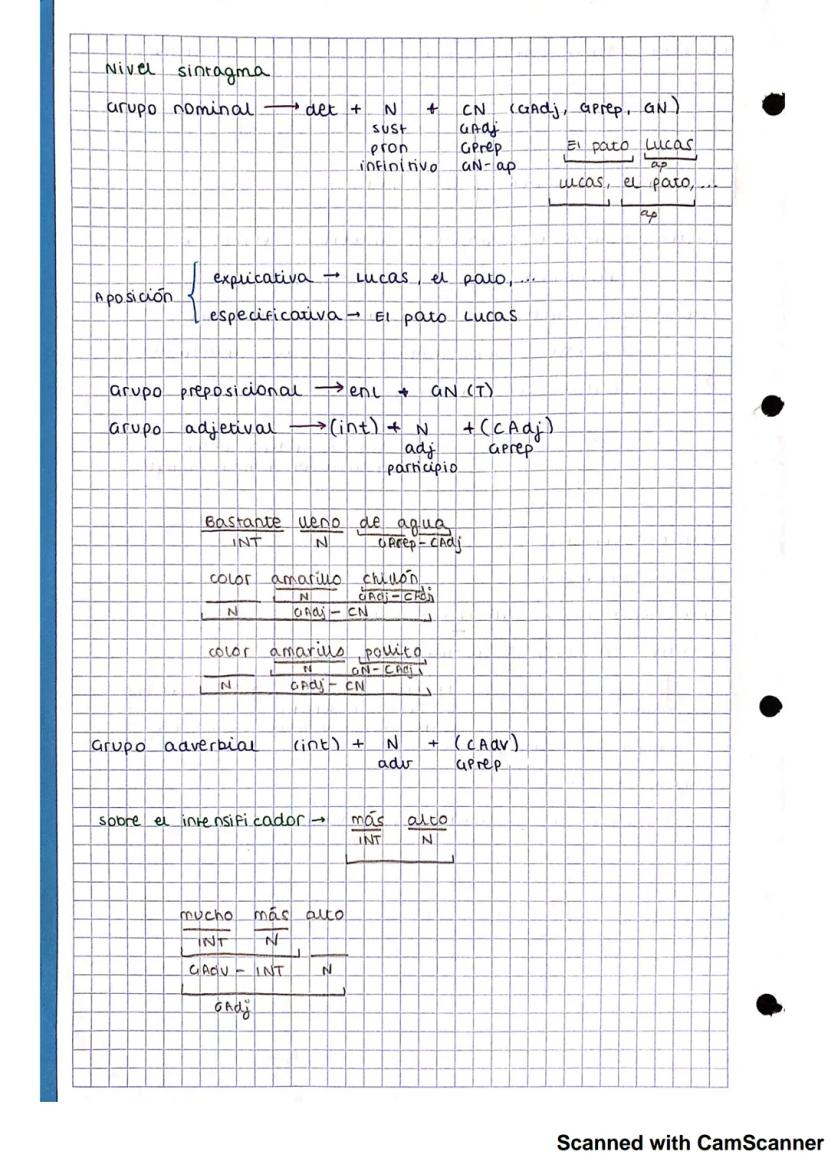 Nivel sintagma
Grupo nominal → det + N + CN (GAdj, GPrep, GN)
sust GAdj
pron GPrep
infinitivo GN-ap
El pato Lucas
ap
Lucas, el pato,...
ap
Aposición
explicativa → Lucas, el pato,...
especificativa → El pato Lucas
Grupo preposicional → enl + GN (T)
Grupo adjetival → (int) + N + (CAdj)
adj GPrep
participio
Bastante lleno de agua
INT N GPrep-CAdj
color amarillo chillón
N GAdj-CAdj
N GAdj-CN
color amarillo pollito
N GN-CAdj
N GAdj-CN
Grupo adverbial (int) + N + (CAdv)
adv GPrep
sobre el intensificador → más alto
INT N
mucho más alto
INT N
GAdv-INT N
GAdj
Scanned with CamScanner